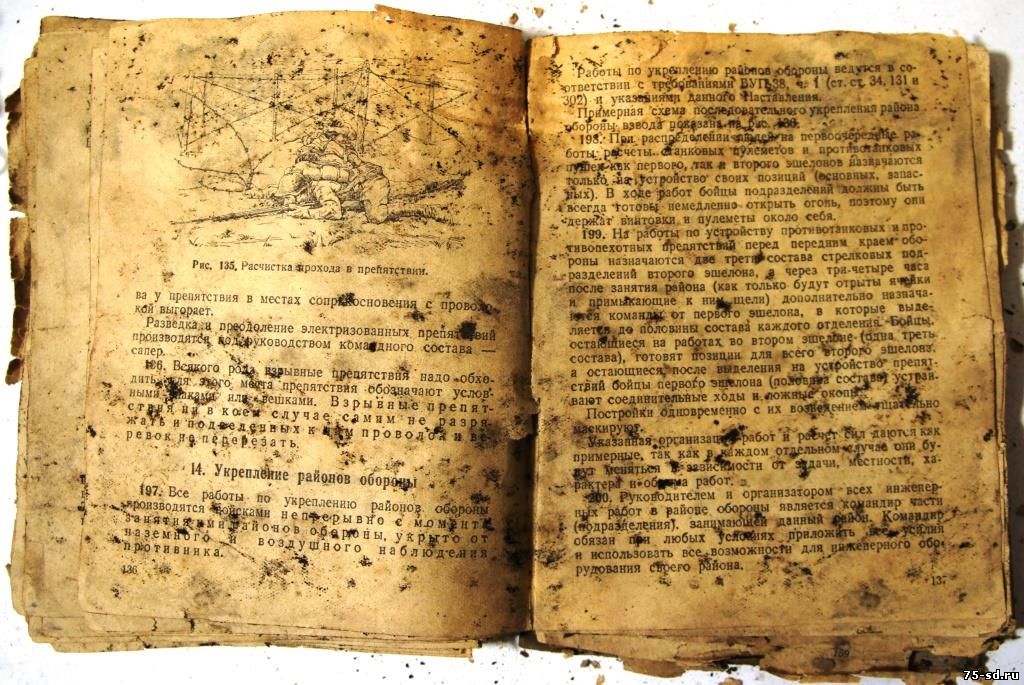 Рис. 135. Расчистка прохода в препятствии.
ва у препятствия в местах соприкосновения с проволо-
кой выгорает.
Разведка и преодоление электризованных препятствий
производятся под руководством командного состава —
сапер.
196. Всякого рода взрывные препятствия надо обхо-
дить, для этого места препятствия обозначают услов-
ными знаками или вешками. Взрывные препят-
ствия ни в коем случае самим не разря-
жать и подведенных к ним проволок и ве-
ревок не перерезать.
14. Укрепление районов обороны
197. Все работы по укреплению районов обороны
производятся войсками непрерывно с момента
занятия ими районов обороны, укрыто от
наземного и воздушного наблюдения
противника.
136
Работы по укреплению районов обороны ведутся в со-
ответствии с требованиями БУП-38, ч. 1 (ст. ст. 34, 131 и
302) и указаниями данного Наставления.
Примерная схема последовательного укрепления района
обороны взвода показана на рис.
198. При распределении людей на первоочередные ра-
боты расчеты станковых пулеметов и противотанковых
пушек как первого, так и второго эшелонов назначаются
только на устройство своих позиций (основных, запас-
ных). В ходе работ бойцы подразделений должны быть
всегда готовы немедленно открыть огонь, поэтому они
держат винтовки и пулеметы около себя.
199. На работы по устройству противотанковых и про-
тивопехотных препятствий перед передним краем обо-
роны назначаются две трети состава стрелковых под-
разделений второго эшелона, а через три-четыре часа
после занятия района (как только будут отрыты ячейки
и примыкающие к ним щели) дополнительно назнача-
ются команды от первого эшелона, в которые выде-
ляется до половины состава каждого отделения. Бойцы,
остающиеся на работах во втором эшелоне (одна треть
состава), готовят позиции для всего второго эшелона,
а остающиеся, после выделения на устройство препят-
ствий бойцы первого эшелона (половина состава) устраи-
вают соединительные ходы и ложные окопы.
Постройки одновременно с их возведением тщательно
маскируют.
Указанная организация работ и расчет сил даются как
примерные, так как в каждом отдельном случае они бу-
дут меняться в зависимости от задачи, местности, ха-
рактера и объема работ.
200. Руководителем и организатором всех инженер-
ных работ в районе обороны является командир части
(подразделения), занимающей данный район. Командир
обязан при любых условиях приложить все усилия
и использовать все возможности для инженерного обо-
рудования своего района.
13
159
75-sd.ru